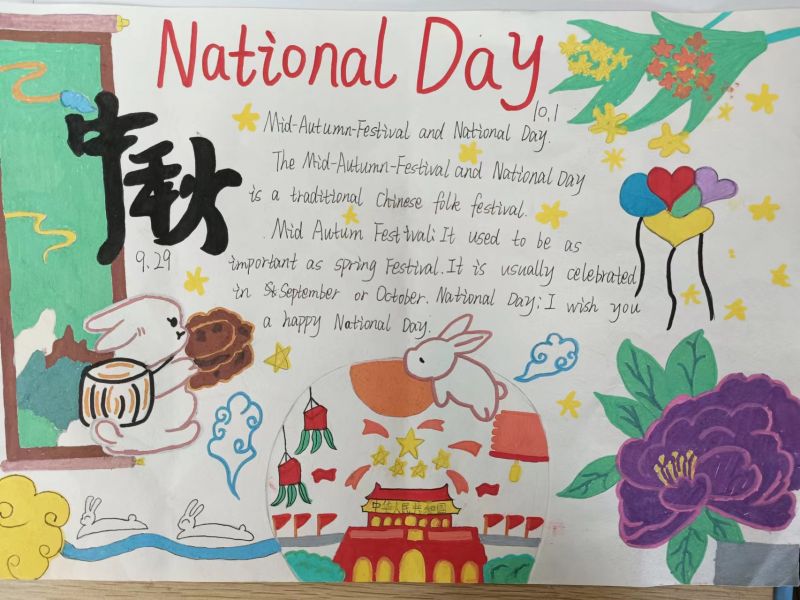 National Day
10.1
中秋
9.29
Mid-Autumn-Festival and National Day.
The Mid-Autumn-Festival and National Day
is a traditional Chinese folk festival.
Mid Autum Festival: It used to be as
important as spring Festival. It is usually celebrated
in September or October. National Day: I wish you
a happy National Day.